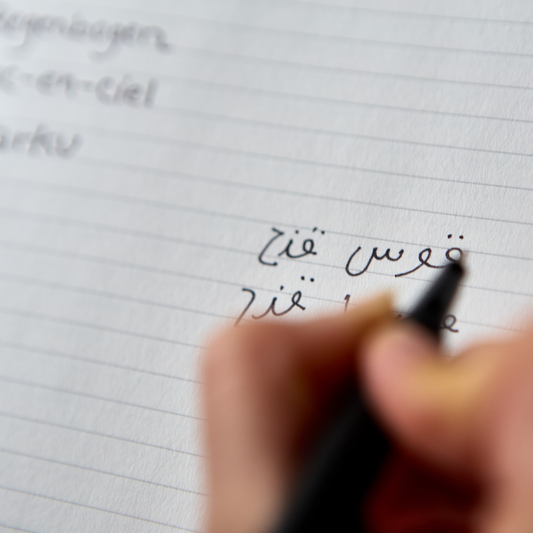 egenbogen
c-en-ciel
arku
قوس قزح
قزح